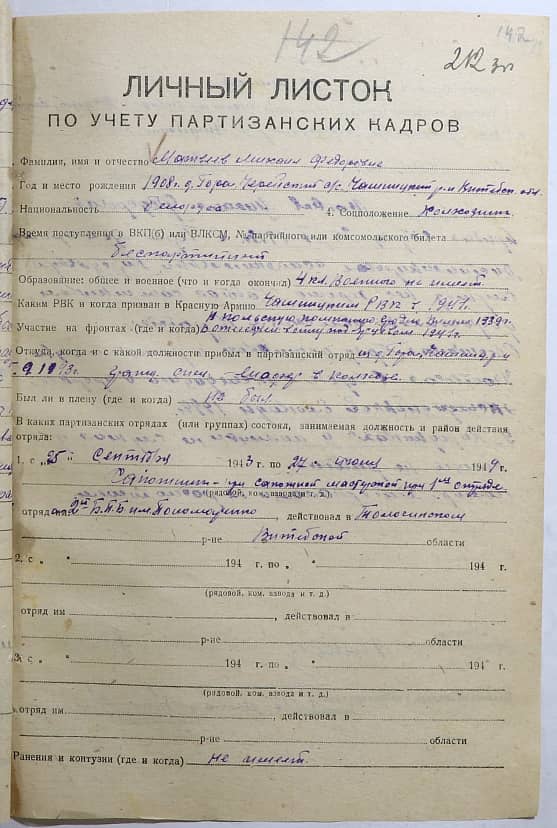 142
142
212
ЛИЧНЫЙ ЛИСТОК
ПО УЧЕТУ ПАРТИЗАНСКИХ КАДРОВ
Фамилия, имя и отчество Матвеев Михаил Федорович
Год и место рождения 1908 г. д. Гора, Черейский с/с. Чашницкий р-н Витебск. обл.
Национальность белорус 4. Соцположение колхозник
Время поступления в ВКП(б) или ВЛКСМ, № партийного или комсомольского билета
беспартийный
Образование: общее и военное (что и когда окончил) 4 кл. Военного не имеет
Каким РВК и когда призван в Красную Армию Чашницким РВК в 1941 г.
в польскую кампанию 1939 г.
Участие на фронтах (где и когда) 1941 г.
Откуда, когда и с какой должности прибыл в партизанский отряд из д. Гора
9. 1943 г. в колхозе
Был ли в плену (где и когда) не был
В каких партизанских отрядах (или группах) состоял, занимаемая должность и район действия
отряда:
1. с „25“ Сентября 1943 г. по 27 июня 1944 г.
Сапожник при сапожной мастерской при 1ом отряде
(рядовой, ком. взвода и т. д.)
отряд 2й действовал в Толочинском
р-не Витебской области
2. с „ “ 194 г. по „ “ 194 г.
(рядовой, ком. взвода и т. д.)
отряд им , действовал в
р-не области
3. с „ “ 194 г. по „ “ 194 г.
(рядовой, ком. взвода и т. д.)
отряд им. , действовал в
р-не области
Ранения и контузии (где и когда) не имеет.